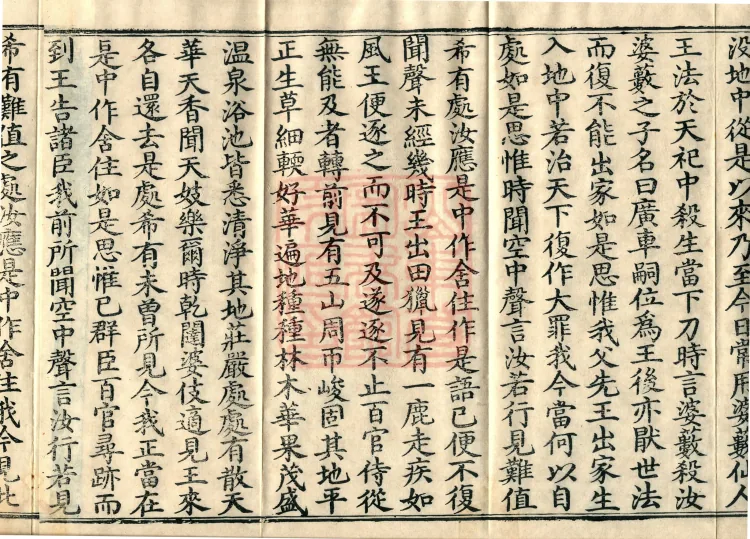 没地中從是以來乃至今日常用婆藪仙人
王法於天祀中殺生當下刀時言婆藪殺汝
婆藪之子名曰廣車嗣位爲王後亦厭世法
而復不能出家如是思惟我父先王出家生
入地中若治天下復作大罪我今當何以自
處如是思惟時聞空中聲言汝若行見難值
希有處汝應是中作舍住作是語已便不復
聞聲未經幾時王出田獵見有一鹿走疾如
風王便逐之而不可及遂逐不止百官侍從
無能及者轉前見有五山周帀峻固其地平
正生草細輭好華遍地種種林木華果茂盛
溫泉浴池皆悉清淨其地莊嚴處處有散天
華天香聞天妓樂爾時乾闥婆伎適見王來
各自還去是處希有未曾所見今我正當在
是中作舍住如是思惟已群臣百官尋跡而
到王告諸臣我前所聞空中聲言汝行若見
希有難值之處汝應是中作舍住我今見此